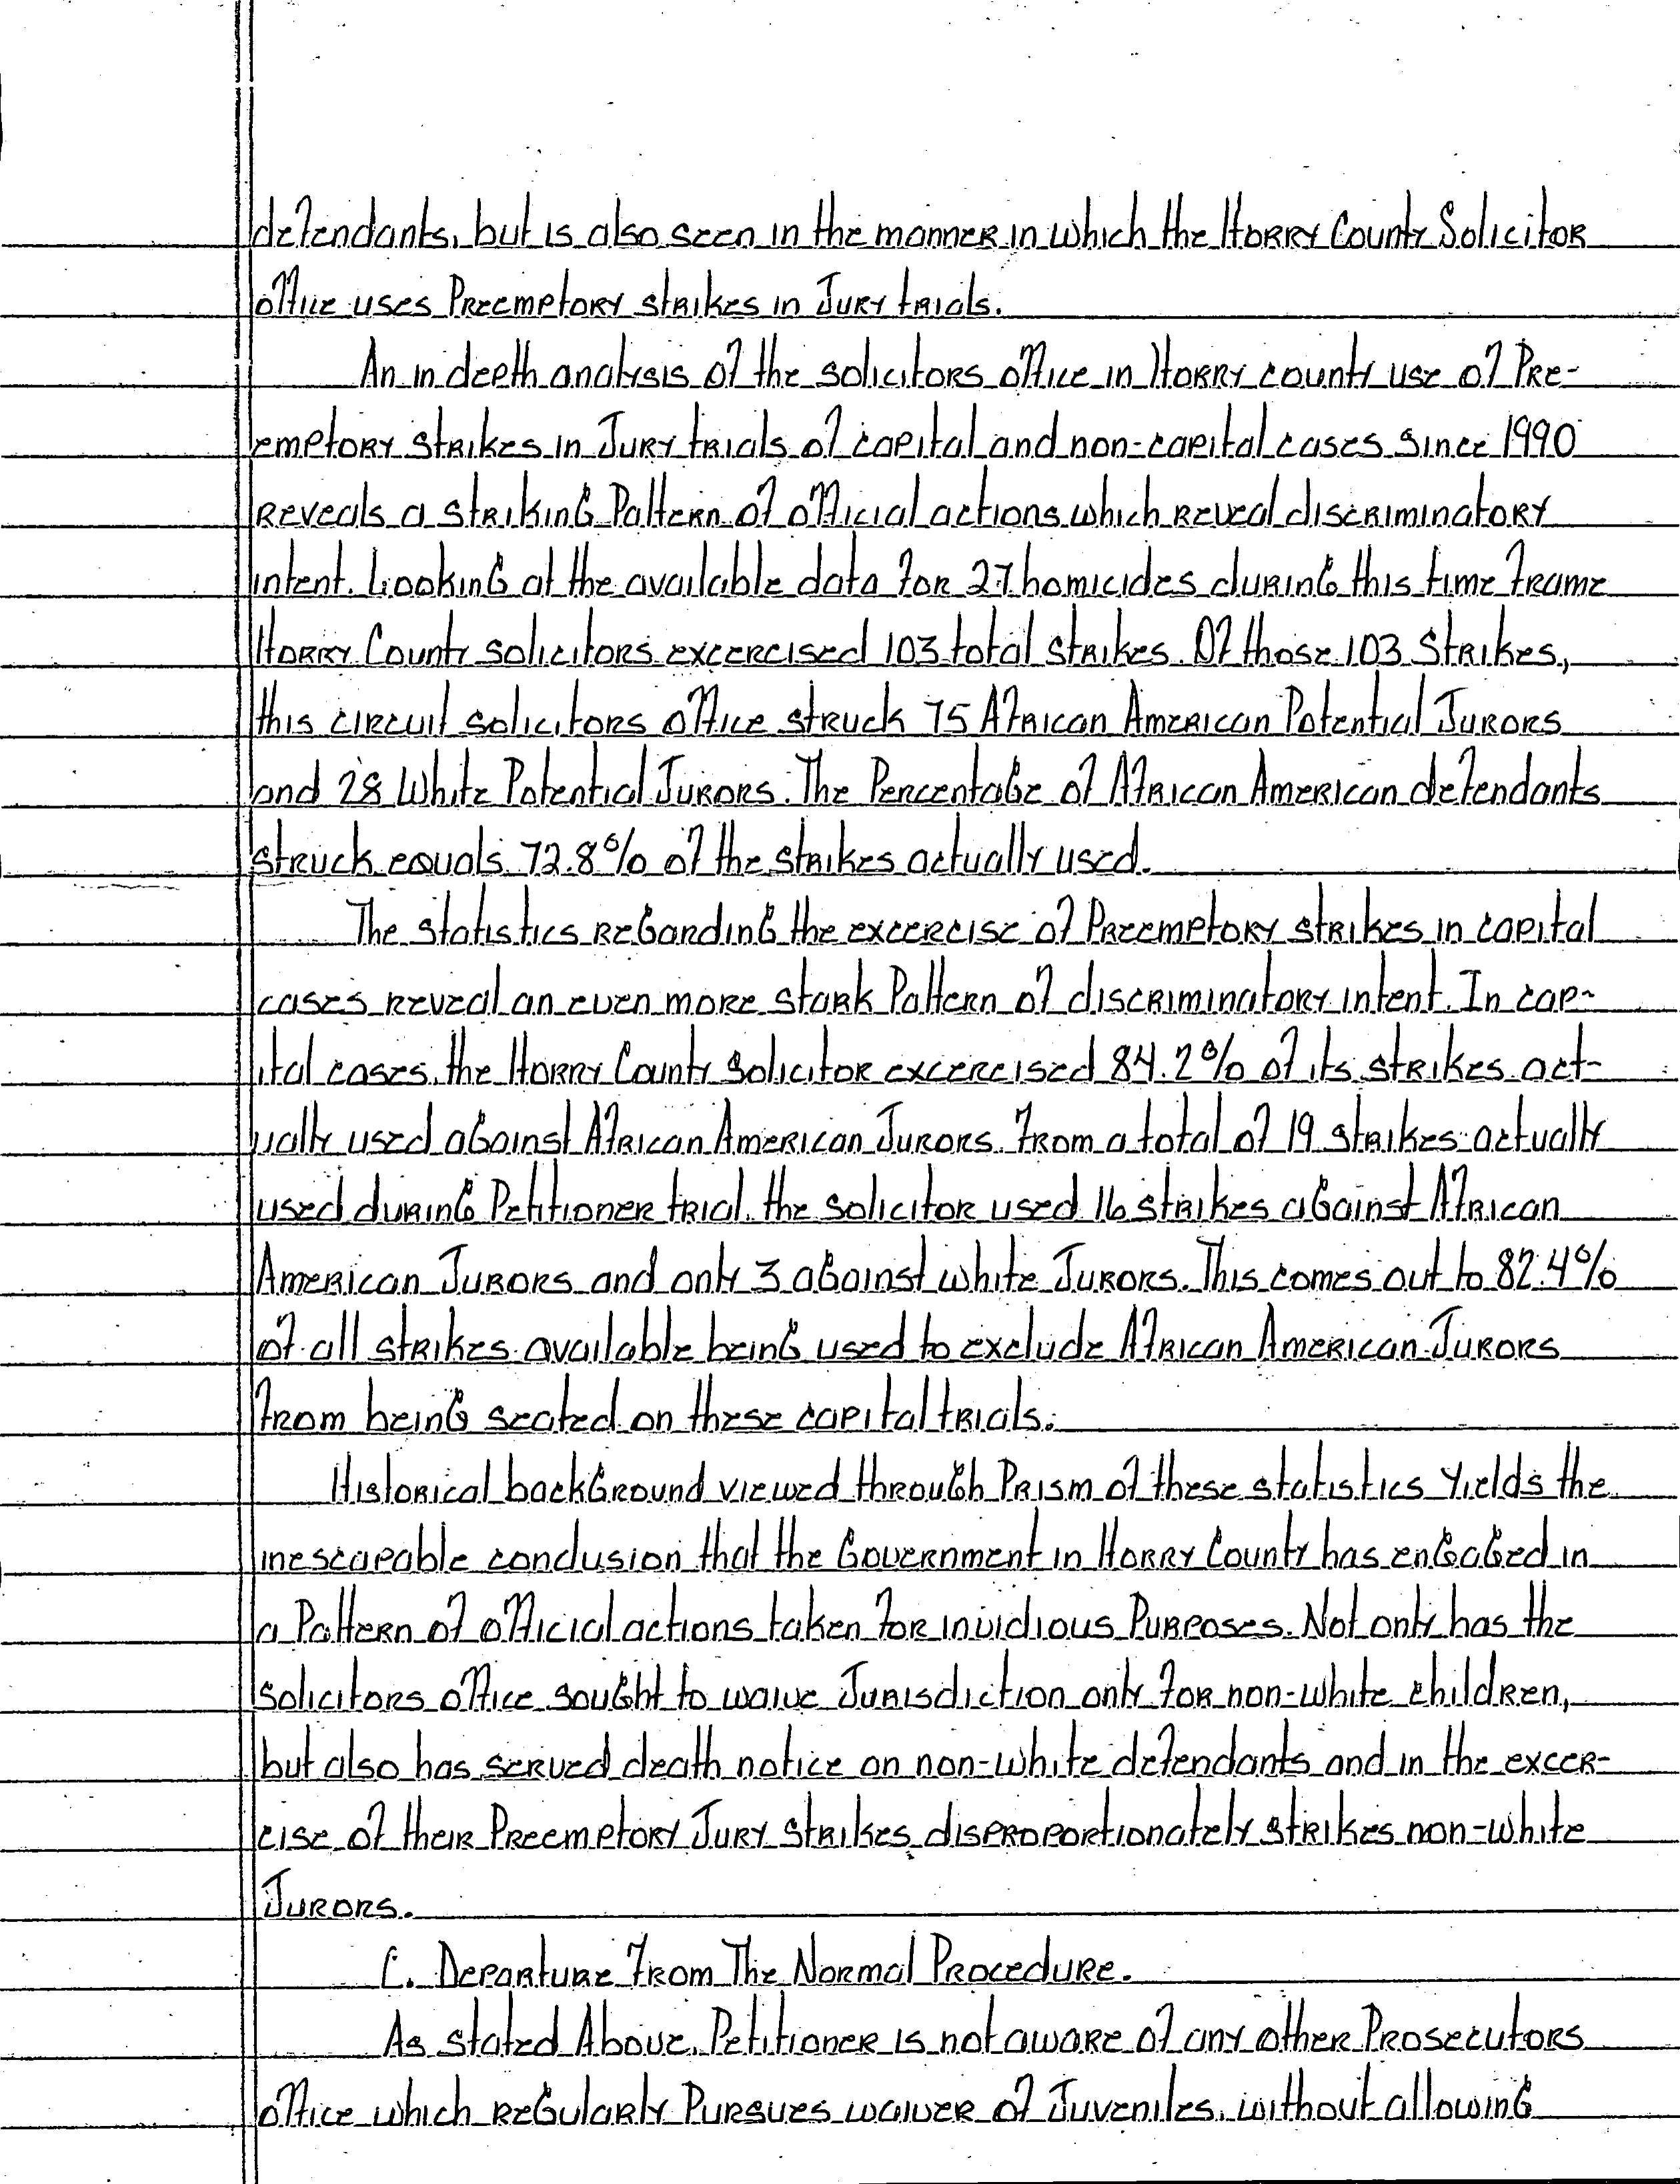 defendants, but is also seen in the manner in which the Horry County Solicitor
office uses Preemptory strikes in Jury trials.
An in depth analysis of the solicitors office in Horry county use of Pre-
emptory strikes in Jury trials of capital and non-capital cases since 1990
reveals a striking Pattern of official actions which reveal discriminatory
intent. Looking at the available data for 27 homicides during this time frame
Horry County solicitors excercised 103 total strikes. Of those 103 Strikes,
this circuit solicitors office struck 75 African American Potential Jurors
and 28 White Potential Jurors. The Percentage of African American defendants
struck equals 72.8% of the strikes actually used.
The statistics regarding the excercise of Preemptory strikes in capital
cases reveal an even more stark Pattern of discriminatory intent. In cap-
ital cases, the Horry County Solicitor excercised 84.2% of its strikes act-
ually used against African American Jurors. From a total of 19 strikes actually
used during Petitioner trial, the solicitor used 16 strikes against African
American Jurors and only 3 against white Jurors. This comes out to 82.4%
of all strikes available being used to exclude African American Jurors
from being seated on these capital trials.
Historical background viewed through Prism of these statistics Yields the
inescapable conclusion that the Government in Horry County has engaged in
a Pattern of official actions taken for invidious Purposes. Not only has the
solicitors office sought to waive Jurisdiction only for non-white children,
but also has served death notice on non-white defendants and in the excer-
cise of their Preemptory Jury strikes disproportionately strikes non-white
Jurors.
C. Departure From The Normal Procedure.
As stated Above, Petitioner is not aware of any other Prosecutors
office which regularly Pursues waiver of Juveniles, without allowing